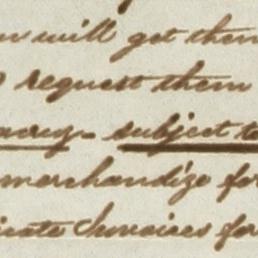 will get them
request them
subject to
merchandize for
icate Invoices for